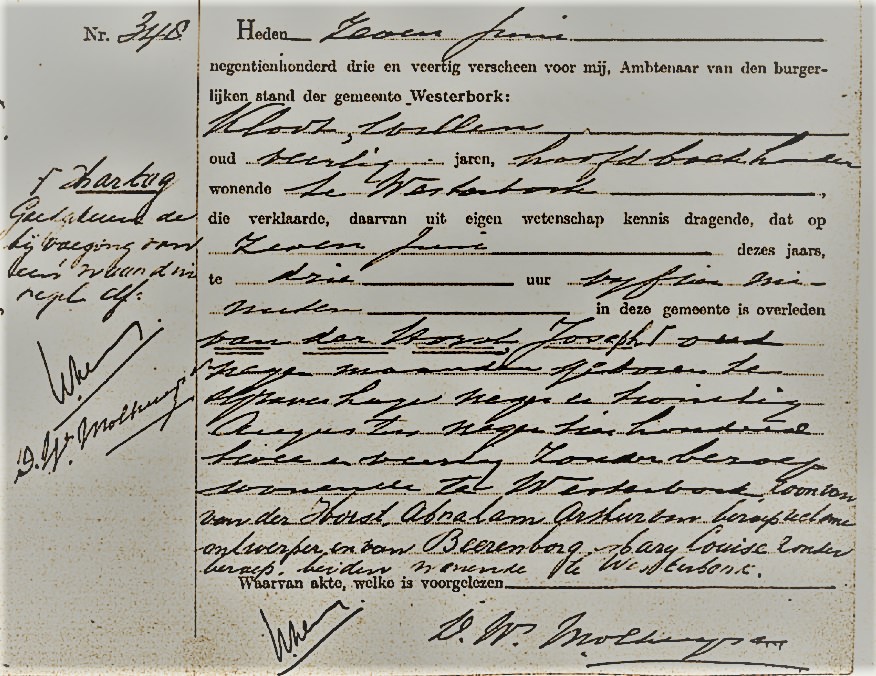 Nr. 348
Heden Zeven Juni
negentienhonderd drie en veertig verscheen voor mij, Ambtenaar van den burger-
lijken stand der gemeente Westerbork:
Kloot, Willem
oud veertig jaren, hoofdboekhouder
wonende te Westerbork,
die verklaarde, daarvan uit eigen wetenschap kennis dragende, dat op
Zeven Juni dezes jaars,
te drie uur vyftien mi-
nuten in deze gemeente is overleden
van der Horst, Joseph oud
negen maanden geboren te
's Gravenhage negen en twintig
Augustus negentienhonderd
twee en veertig zonder beroep
wonende te Westerbork, zoon van
van der Horst, Abraham Arthur van beroep reclame
ontwerper en van Beerenborg, Mary Louise zonder
beroep, beiden wonende te Westerbork.
Waarvan akte, welke is voorgelezen
D. W.
Hartog
Goedgekeurd de
bijvoeging van
een woord in
regel elf.
D. W.